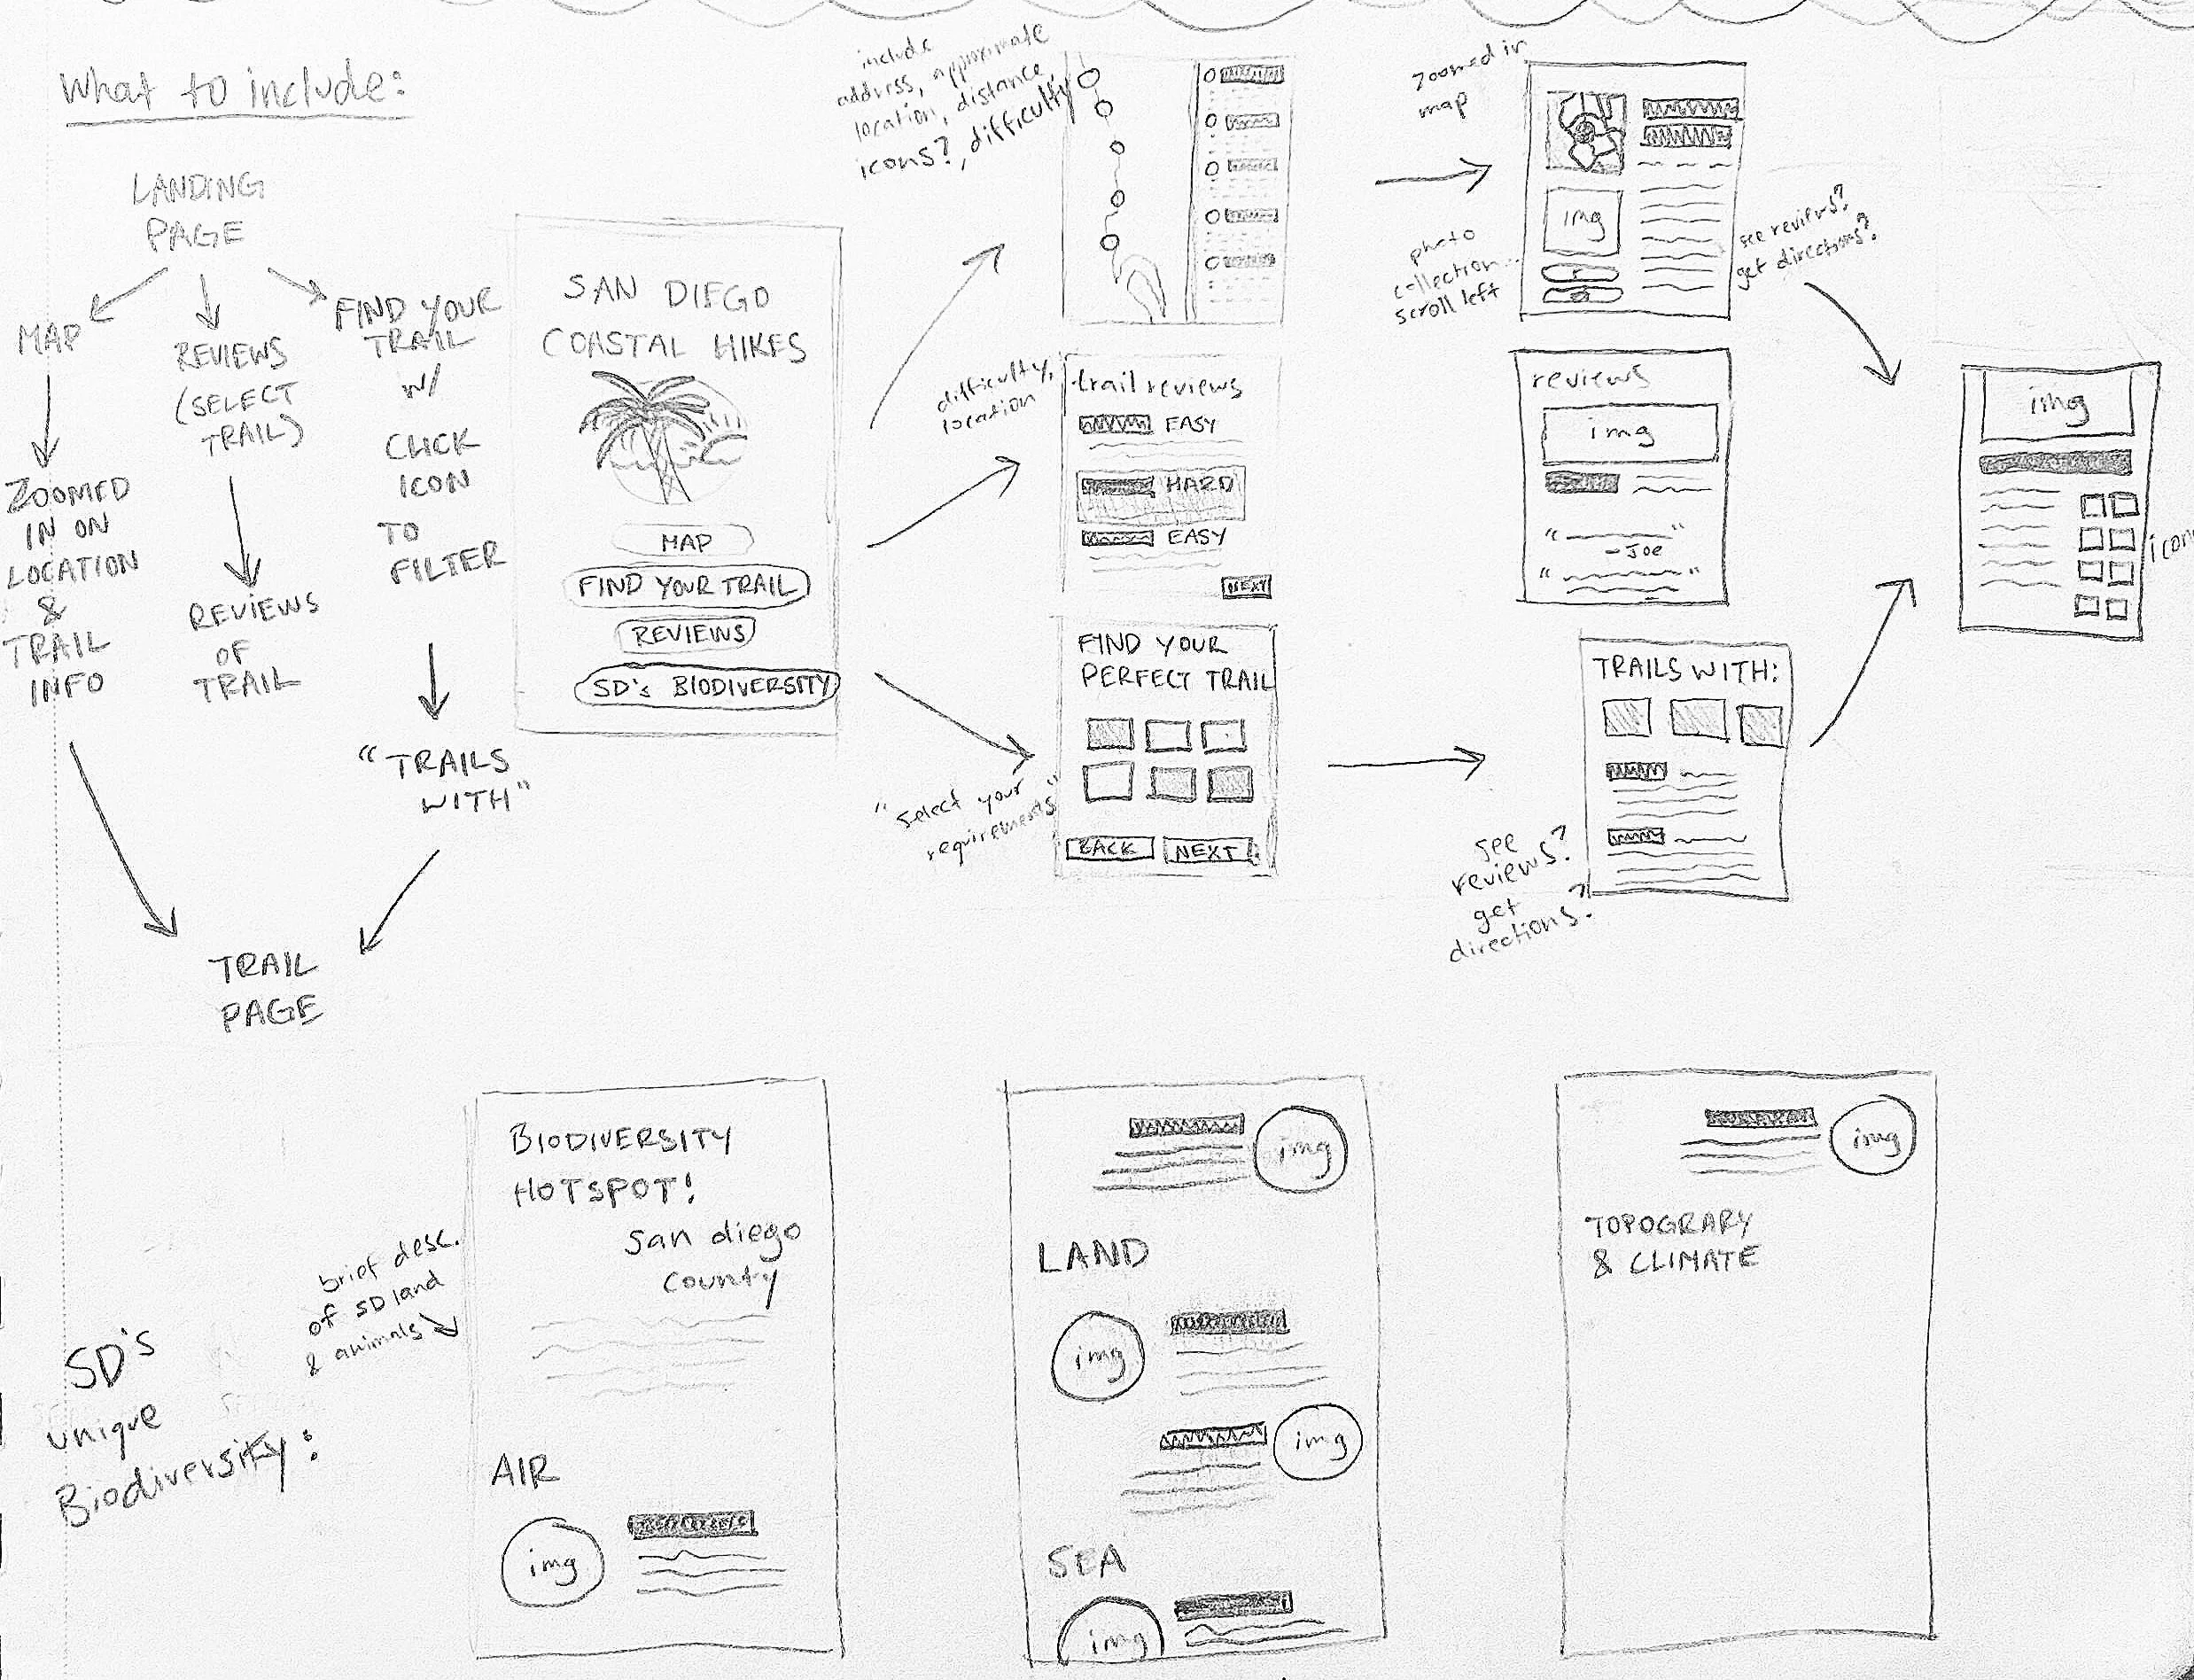 What to include:
LANDING
PAGE
MAP
REVIEWS
(SELECT
TRAIL)
FIND YOUR
TRAIL
w/
CLICK
ICON
TO
FILTER
ZOOMED
IN ON
LOCATION
&
TRAIL
INFO
REVIEWS
OF
TRAIL
"TRAILS
WITH"
TRAIL
PAGE
SAN DIEGO
COASTAL HIKES
MAP
FIND YOUR TRAIL
REVIEWS
SD's BIODIVERSITY
include
address, approximate
location, distance,
icons?, difficulty
zoomed in
map
photo
collection...
scroll left
img
see reviews?
get directions?
difficulty,
location
trail reviews
EASY
HARD
EASY
NEXT
reviews
img
" "
-JOE
" "
img
icon
"select your
requirements"
FIND YOUR
PERFECT TRAIL
BACK NEXT
TRAILS WITH:
see
reviews?
get
directions?
SD's
unique
Biodiversity:
brief desc.
of SD land
& animals
BIODIVERSITY
HOTSPOT!
san diego
county
AIR
img
img
LAND
img
img
SEA
img
img
TOPOGRARY
& CLIMATE